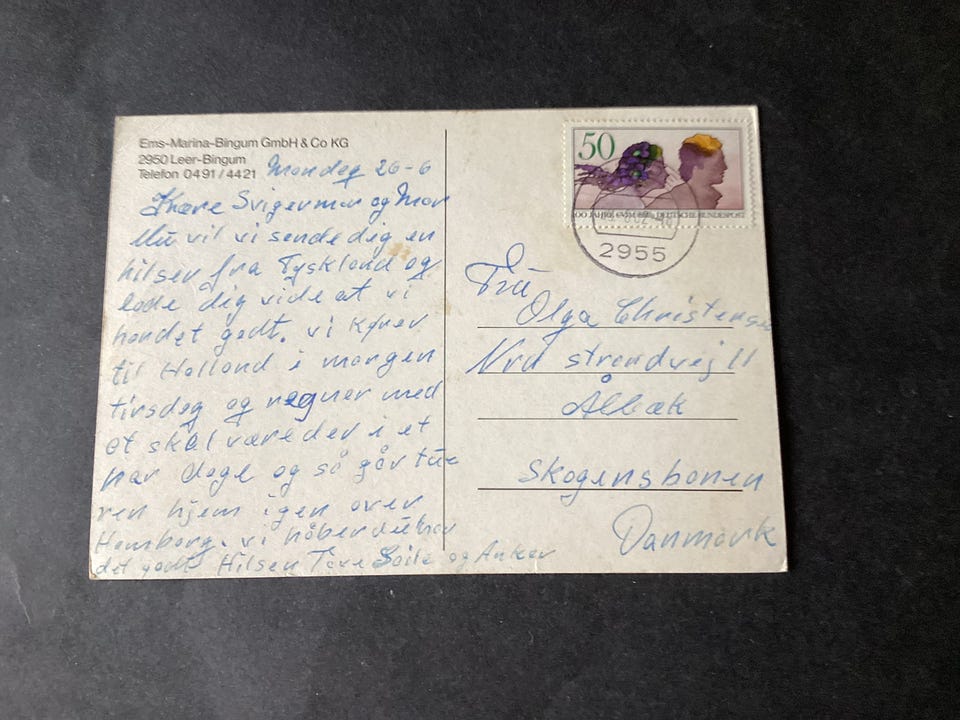 Ems-Marina-Bingum GmbH & Co KG
2950 Leer-Bingum
Telefon 04 91 / 44 21
Mandag 26-6
Kære Svigermor og Mor
Nu vil vi sende dig en
hilsen fra Tyskland og
lade dig vide at vi
har det godt. vi kører
til Holland i morgen
tirsdag og regner med
at skal være der i et
par dage og så går tuu
ren hjem igen over
Hamborg. vi håber du har
det godt Hilsen Tove og Anker
50
DEUTSCHE BUNDESPOST
2955
Fru
Olga Christensen
Nrd strandvej 11
Ålbæk
Skagensbanen
Danmark